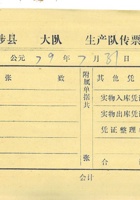 涉县 大队 生产队传票
公元79年7月31日
张 数
附属单据共
其他凭
实物入库凭
实物出库凭
凭证整理(
张 合
会计